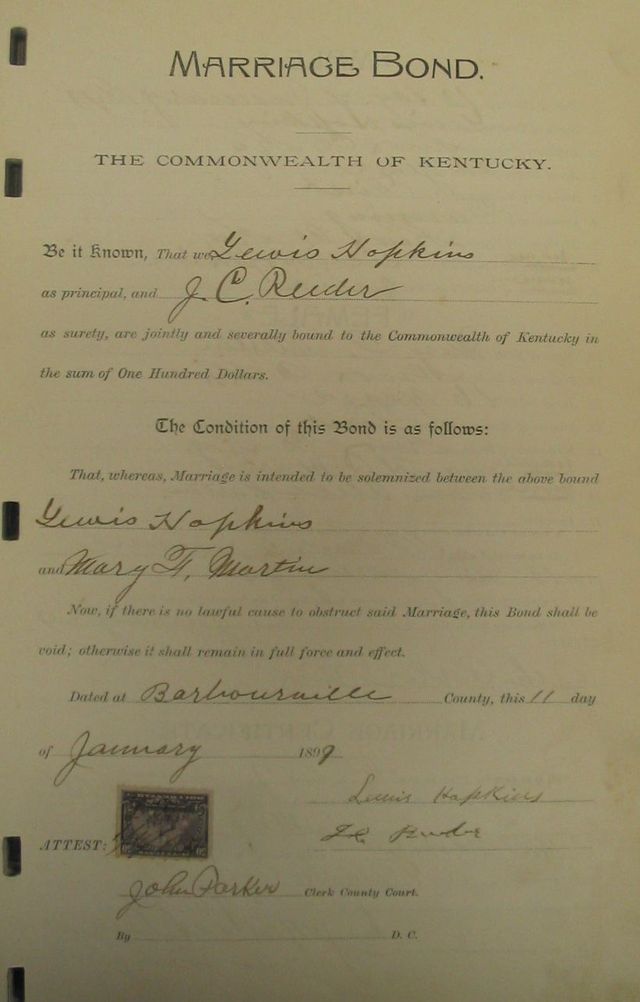 MARRIAGE BOND.
THE COMMONWEALTH OF KENTUCKY.
Be it Known, That we Lewis Hopkins
as principal, and J. C. Reeder
as surety, are jointly and severally bound to the Commonwealth of Kentucky in
the sum of One Hundred Dollars.
The Condition of this Bond is as follows:
That, whereas, Marriage is intended to be solemnized between the above bound
Lewis Hopkins
and Mary F. Martin
Now, if there is no lawful cause to obstruct said Marriage, this Bond shall be
void; otherwise it shall remain in full force and effect.
Dated at Barbourville County, this 11 day
of January 1899
Lewis Hopkins
J C Reeder
ATTEST:
John Parker Clerk County Court.
By D. C.